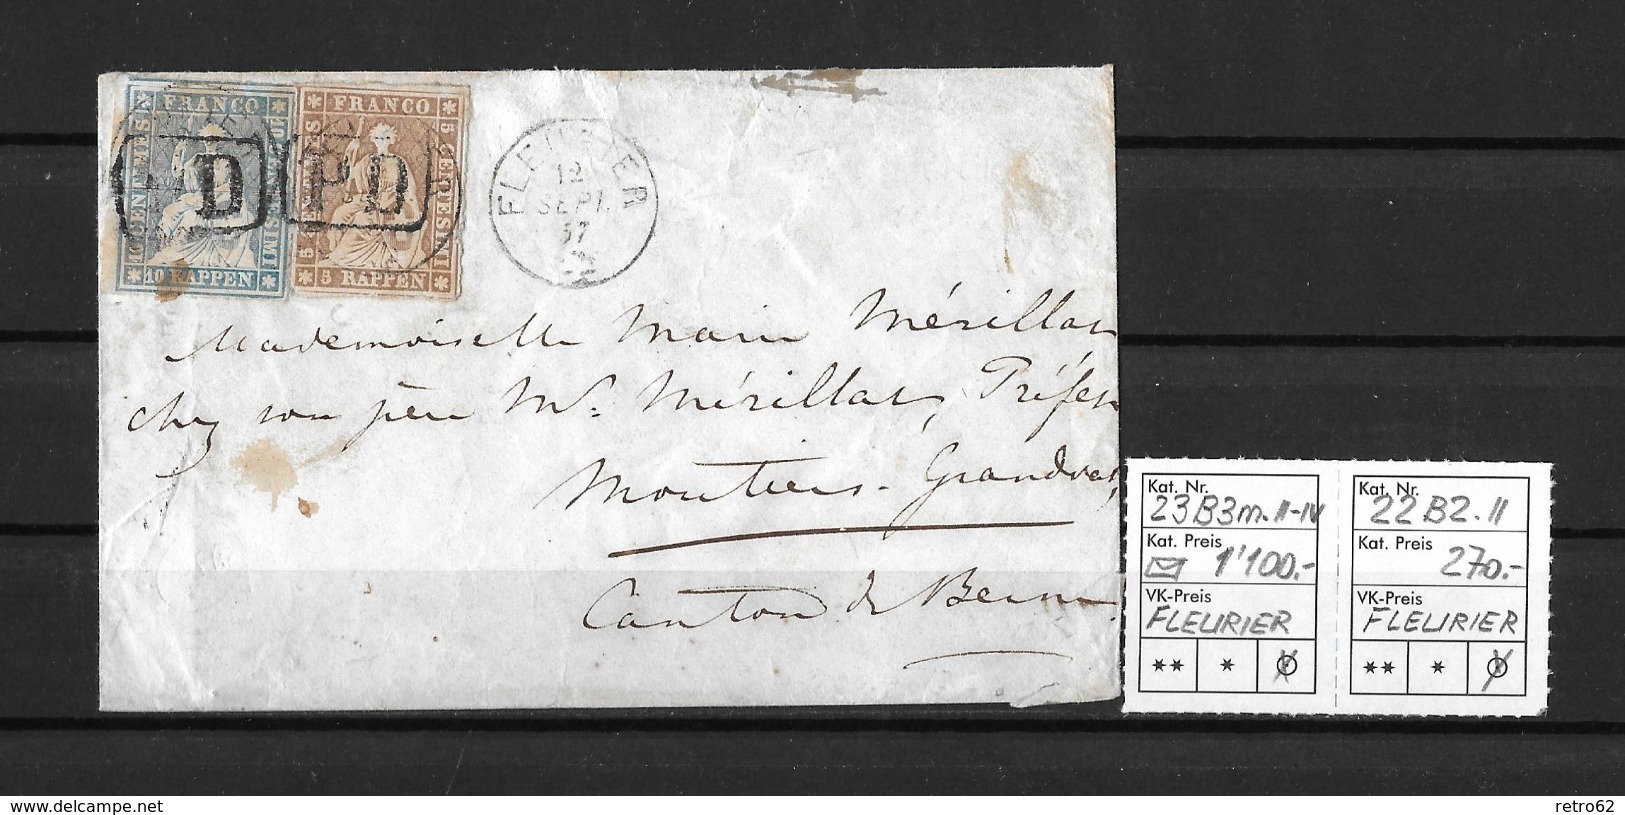 FRANCO
10 CENTIMES
10 CENTESIMI
10 RAPPEN
D
FRANCO
5 CENTIMES
5 CENTESIMI
5 RAPPEN
PD
FLEURIER
12
SEPT.
57
Mademoiselle Marie Mérillat
chez son père Mr. Mérillat, Préfet
Moutiers-Grandval,
Canton de Berne.
Kat. Nr.
23B3m.II-IV
Kat. Preis
1'100.-
VK-Preis
FLEURIER
** * ⊙
Kat. Nr.
22B2.II
Kat. Preis
270.-
VK-Preis
FLEURIER
** * ⊙
www.delcampe.net
retro62